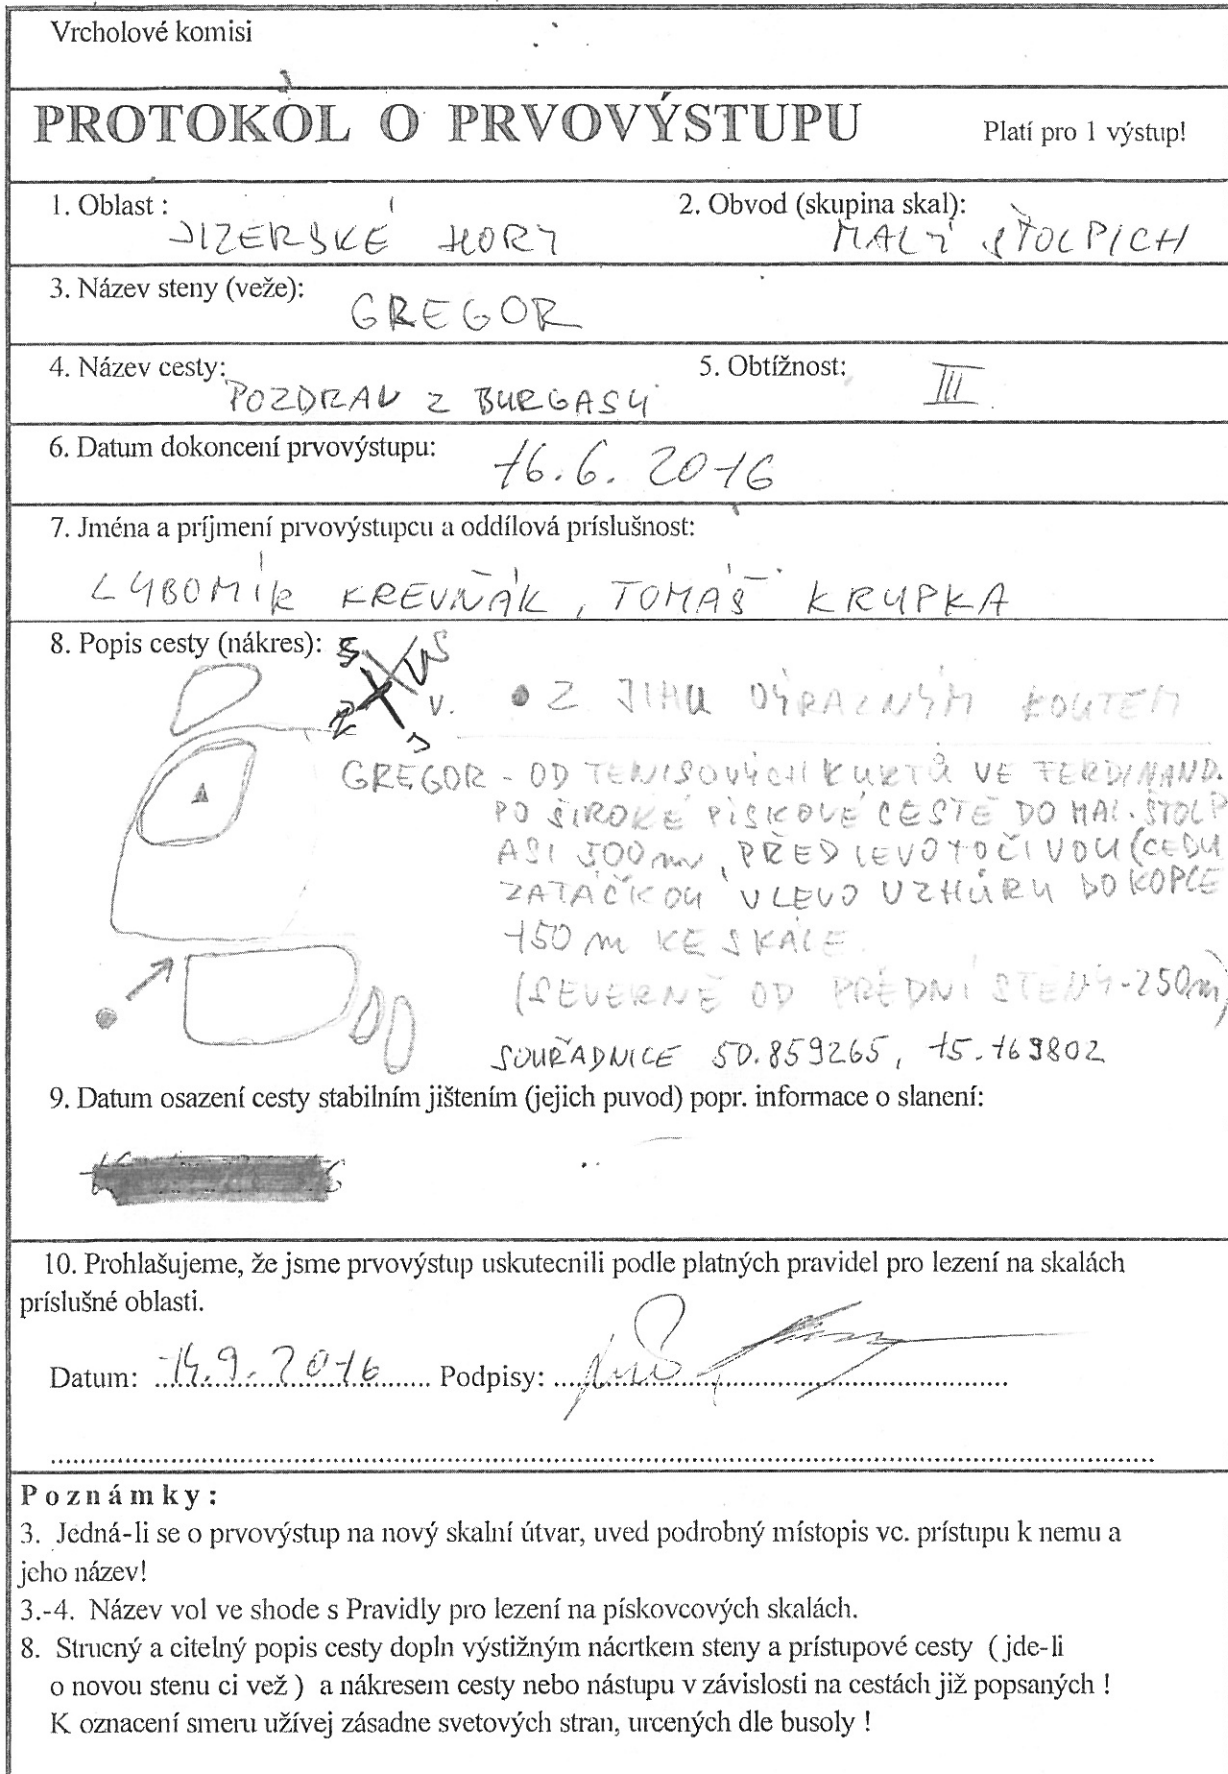 Vrcholové komisi
PROTOKOL O PRVOVÝSTUPU Platí pro 1 výstup!
1. Oblast : JIZERSKÉ HORY 2. Obvod (skupina skal): MALÝ ŠTOLPICH
3. Název steny (veže): GREGOR
4. Název cesty: POZDRAV Z BURGASU 5. Obtížnost: III
6. Datum dokoncení prvovýstupu: 16.6. 2016
7. Jména a príjmení prvovýstupcu a oddílová príslušnost:
LUBOMÍR KREVŇÁK, TOMÁŠ KRUPKA
8. Popis cesty (nákres):
S
V.
Z
J
Z JIHU VÝRAZNÝM KOUTEM
GREGOR - OD TENISOVÝCH KURTŮ VE FERDINAND.
PO ŠIROKÉ PÍSKOVÉ CESTĚ DO MAL. ŠTOLP
ASI 500 m, PŘED LEVOTOČIVOU (CEDU
ZATÁČKOU VLEVO VZHŮRU DO KOPCE
150 m KE SKÁLE
(SEVERNĚ OD PŘEDNÍ STĚNY - 250m)
SOUŘADNICE 50.859265, 15.169802
9. Datum osazení cesty stabilním jištením (jejich puvod) popr. informace o slanení:
10. Prohlašujeme, že jsme prvovýstup uskutecnili podle platných pravidel pro lezení na skalách
príslušné oblasti.
Datum: 14.9. 2016 Podpisy:
Poznámky:
3. Jedná-li se o prvovýstup na nový skalní útvar, uved podrobný místopis vc. prístupu k nemu a
jeho název!
3.-4. Název vol ve shode s Pravidly pro lezení na pískovcových skalách.
8. Strucný a citelný popis cesty dopln výstižným nácrtkem steny a prístupové cesty ( jde-li
o novou stenu ci vež ) a nákresem cesty nebo nástupu v závislosti na cestách již popsaných !
K oznacení smeru užívej zásadne svetových stran, urcených dle busoly !